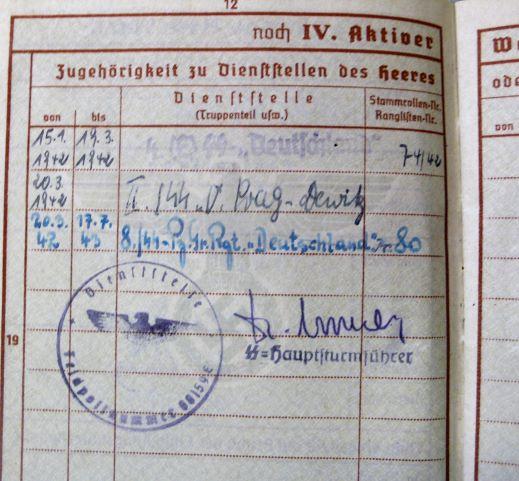 12
noch IV. Aktiver
Zugehörigkeit zu Dienststellen des Heeres
von bis
Dienststelle
(Truppenteil usw.)
Stammrollen-Nr.
Ranglisten-Nr.
15.1. 19.3.
1942 1942
"Deutschland"
20.3.
1942
Prag-Dewitz
20.3. 17.7.
42 43
8./SS-Pz.Gr.Rgt. „Deutschland" Nr. 80
Dienststelle
Feldpostnummer
SS=Hauptsturmführer
19
ode
von